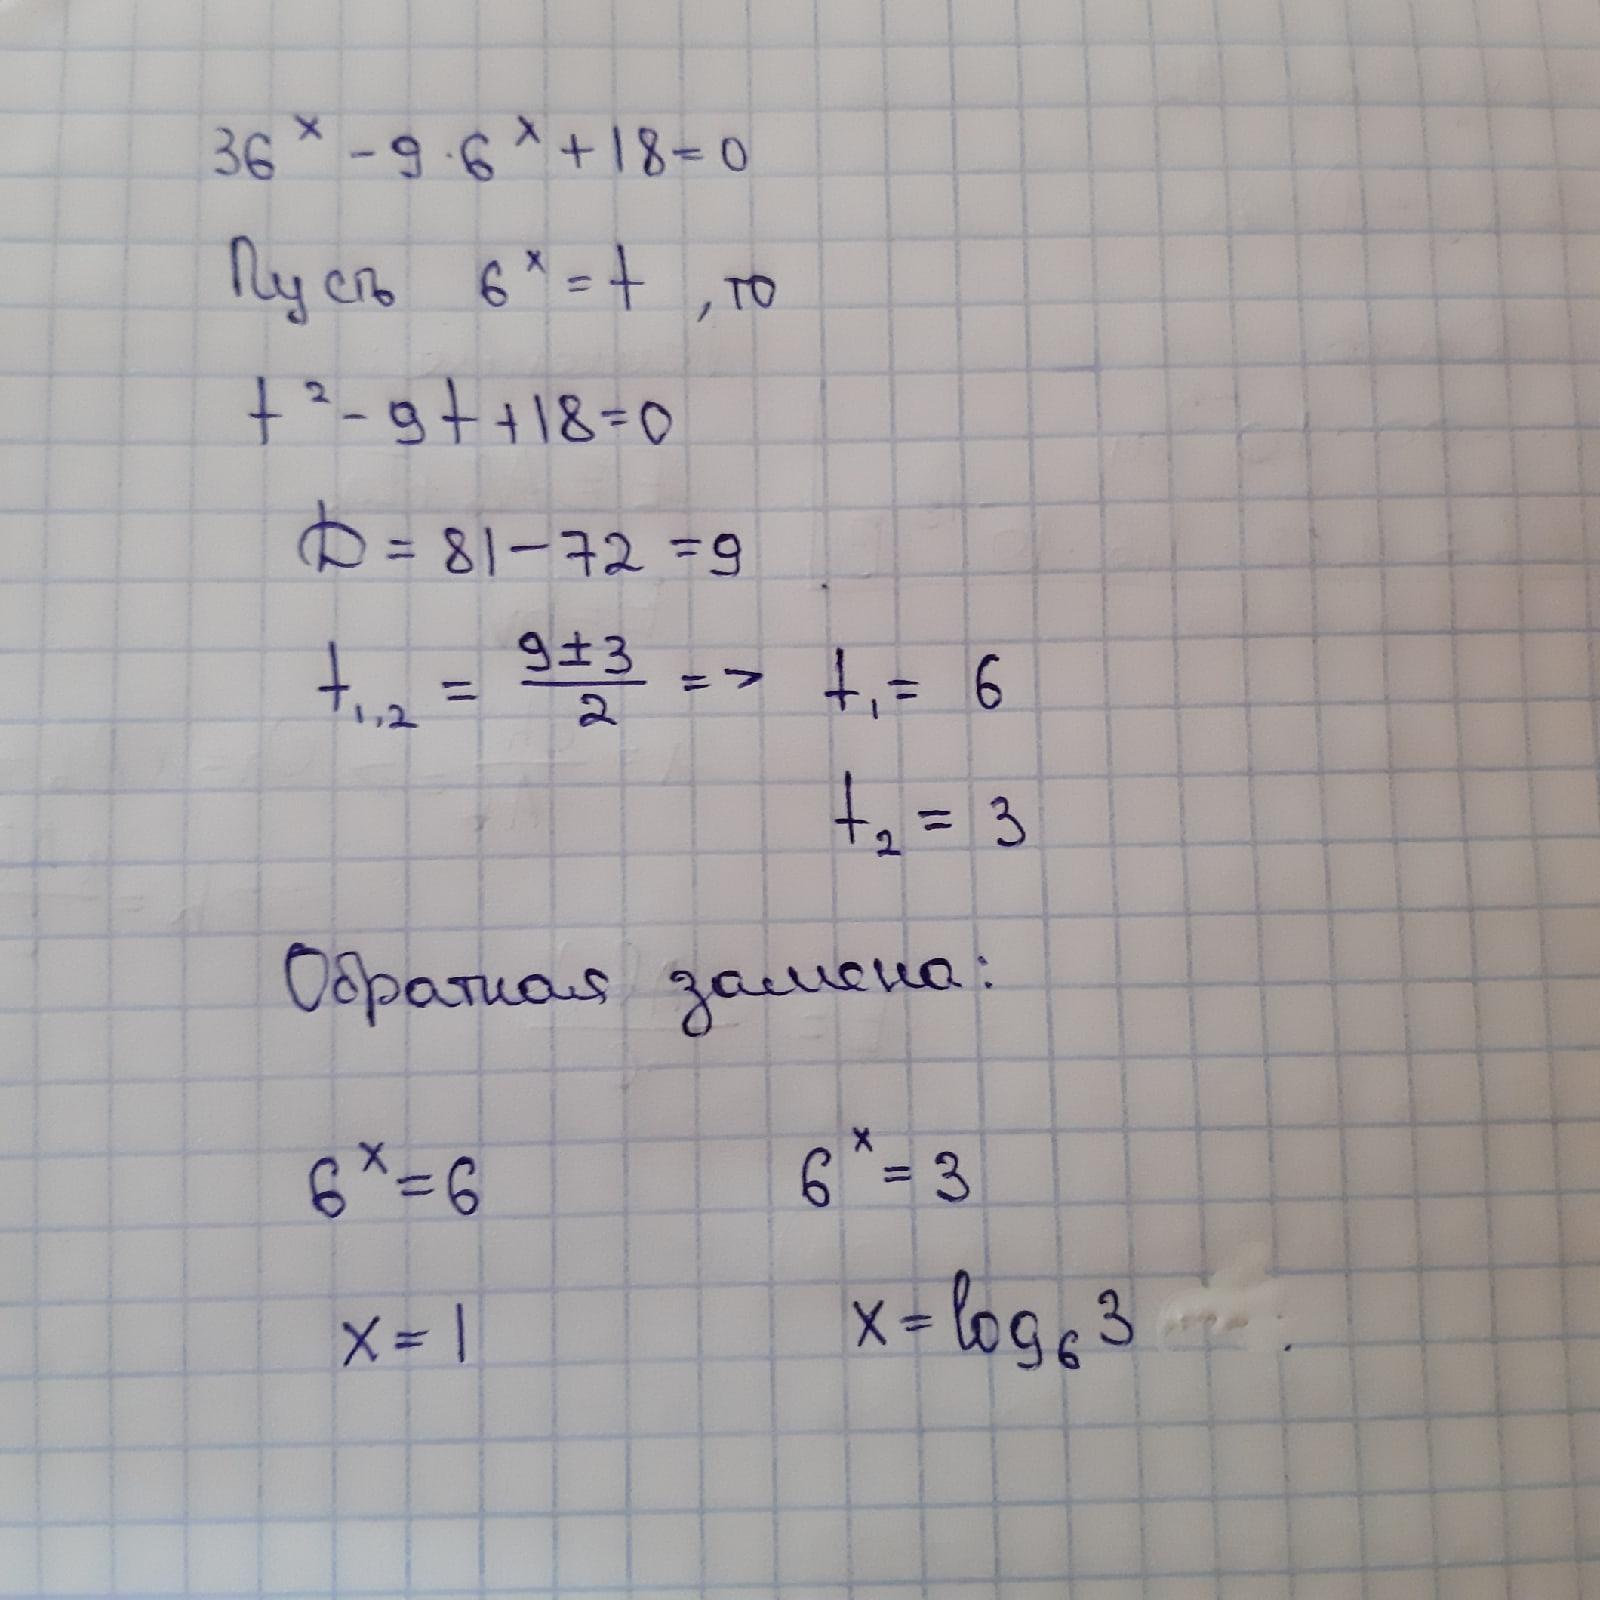 36^x - 9 · 6^x + 18 = 0
Пусть 6^x = t , то
t² - 9t + 18 = 0
D = 81 - 72 = 9
t₁,₂ = (9 ± 3)/2 => t₁ = 6
t₂ = 3
Обратная замена:
6^x = 6 6^x = 3
x = 1 x = log₆ 3